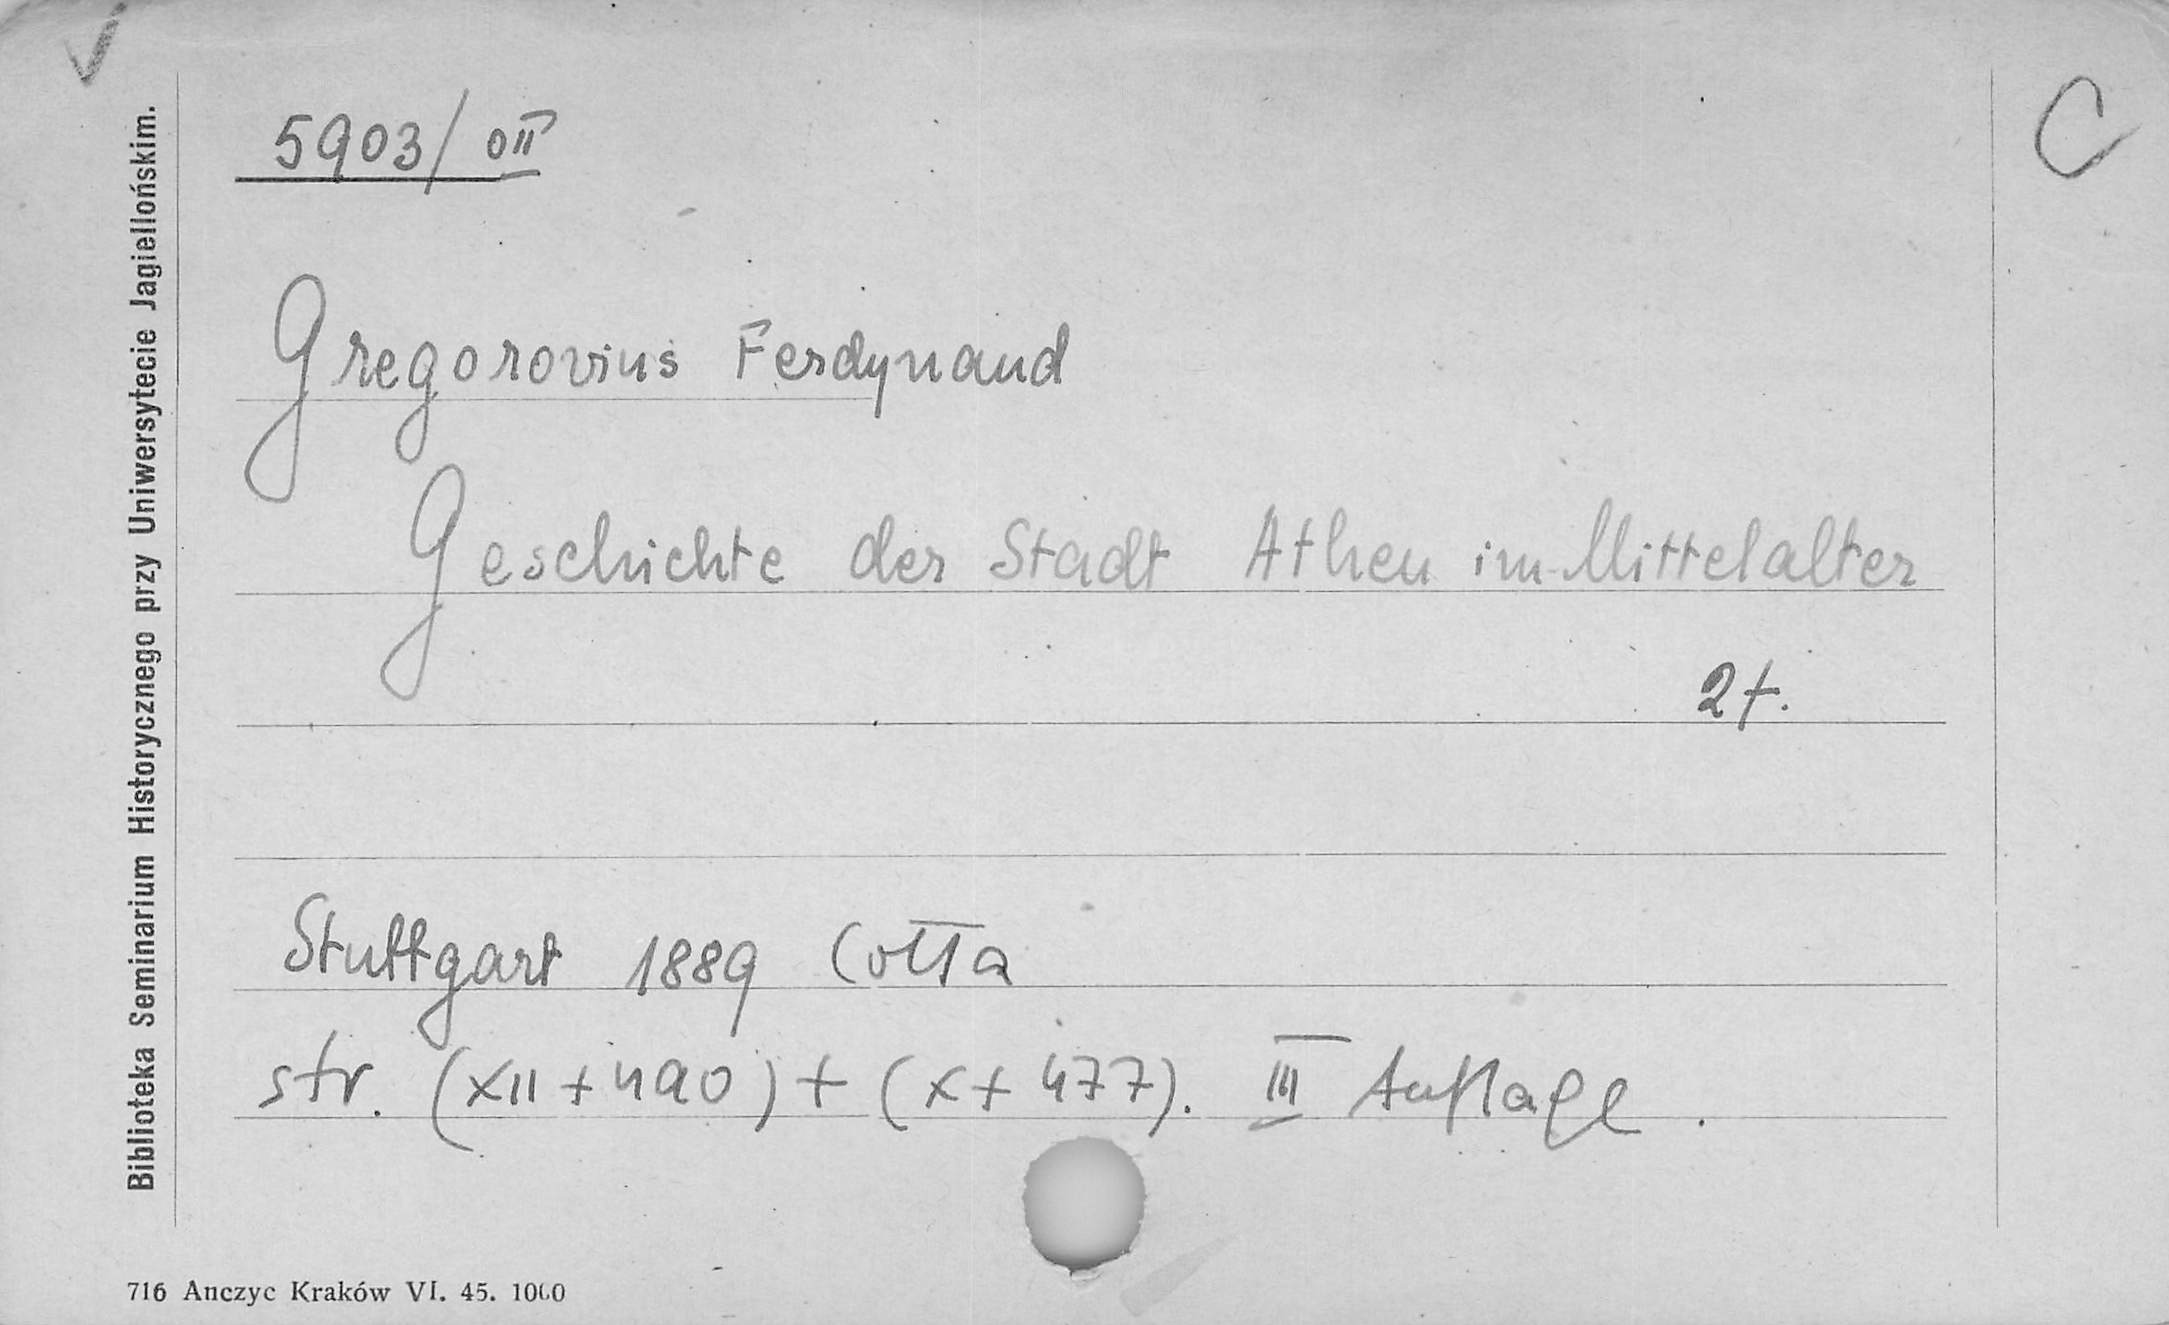 5903/OII
C
Gregorovius Ferdynand
Geschichte der Stadt Athen im Mittelalter
2 t.
Stuttgart 1889 Cotta
str. (XII + 490) + (X + 477). III Auflage.
Biblioteka Seminarium Historycznego przy Uniwersytecie Jagiellońskim.
716 Anczyc Kraków VI. 45. 1000